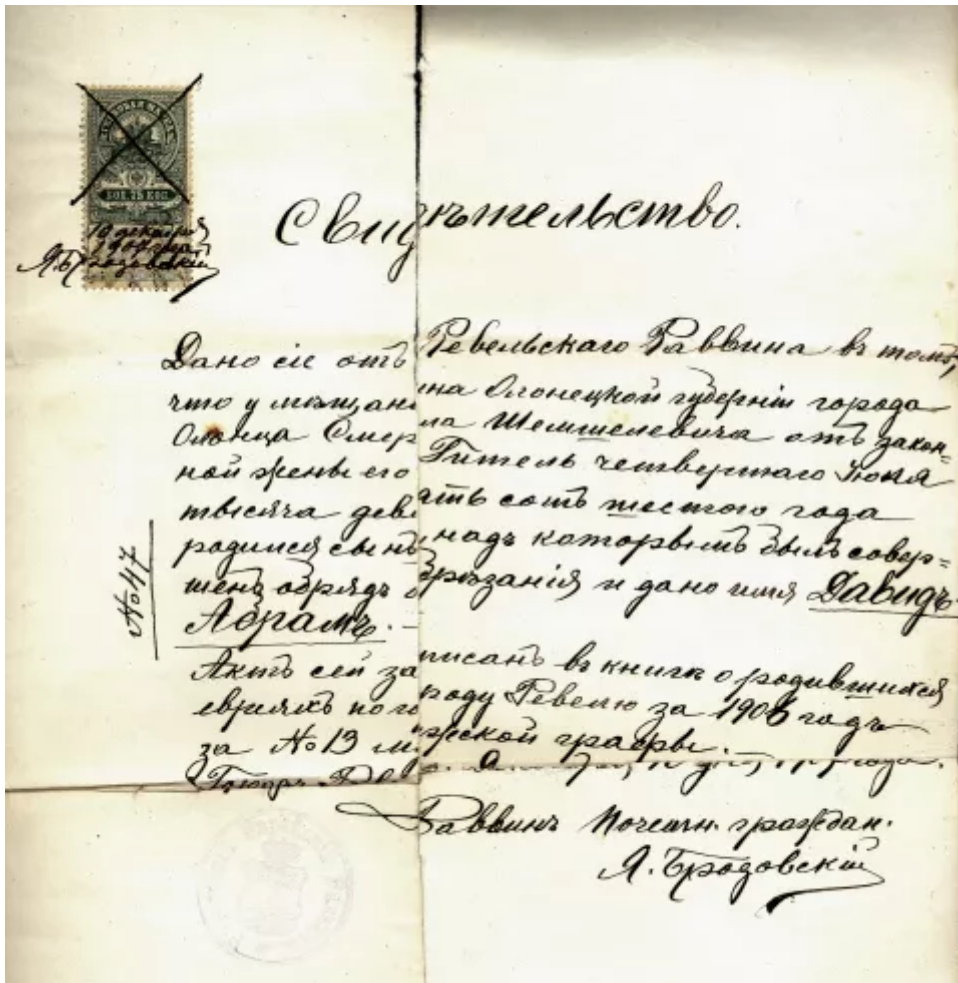 ГЕРБОВАЯ МАРКА
КОП. 75 КОП.
19 декабря
Я. Бродовскій
Свидѣтельство.
Дано сіе отъ Ревельскаго Раввина въ томъ,
что у мѣщанина Олонецкой губерніи города
Олонца Смерла Шемшелевича отъ закон=
ной жены его Гитель четвертаго Іюня
тысяча девятьсотъ шестого года
родился сынъ, надъ которымъ былъ совер=
шенъ обрядъ обрѣзанія и дано имя Давидъ-
Абрамъ. —
Актъ сей записанъ въ книгѣ о родившихся
евреяхъ по городу Ревелю за 1906 годъ
за № 13 мужской графы.
Раввинъ Почетн. граждан.
Я. Бродовскій
№ 47